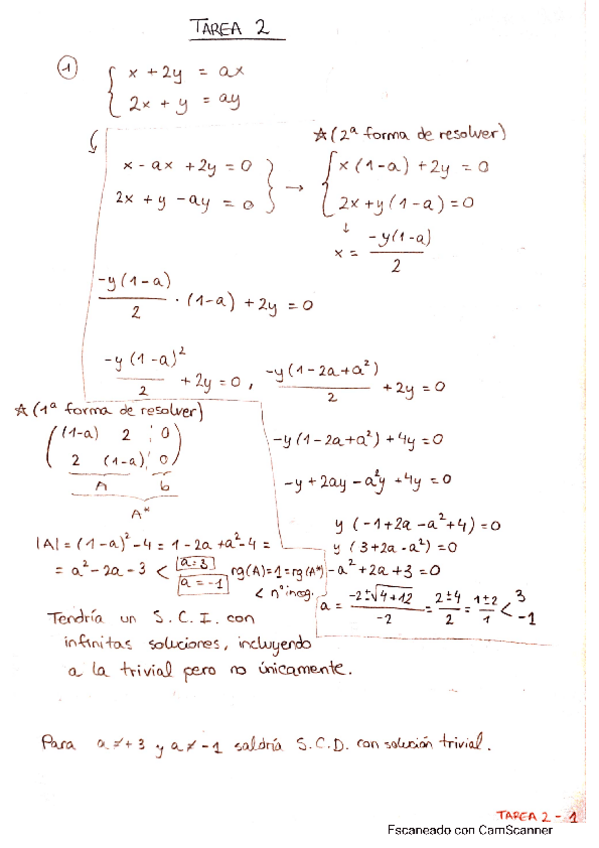 TAREA 2
① { x + 2y = ax
2x + y = ay
☆ (2ª forma de resolver)
x - ax + 2y = 0
2x + y - ay = 0 } → { x(1-a) + 2y = 0
2x + y(1-a) = 0
↓
x = -y(1-a) / 2
-y(1-a) / 2 · (1-a) + 2y = 0
-y(1-a)² / 2 + 2y = 0 , -y(1-2a+a²) / 2 + 2y = 0
-y(1-2a+a²) + 4y = 0
-y + 2ay - a²y + 4y = 0
y(-1+2a-a²+4) = 0
y(3+2a-a²) = 0
-a² + 2a + 3 = 0
a = -2±√4+12 / -2 = 2±4 / 2 = 1±2 / 1 < 3
-1
☆ (1ª forma de resolver)
( (1-a) 2 ¦ 0 )
( 2 (1-a) ¦ 0 )
A b
A*
|A| = (1-a)² - 4 = 1 - 2a + a² - 4 =
= a² - 2a - 3 < a=3
a=-1
rg(A)=1=rg(A*)
< nº incog.
Tendría un S.C.I. con
infinitas soluciones, incluyendo
a la trivial pero no únicamente.
Para a ≠ +3 y a ≠ -1 saldría S.C.D. con solución trivial.
TAREA 2 - 1
Escaneado con CamScanner